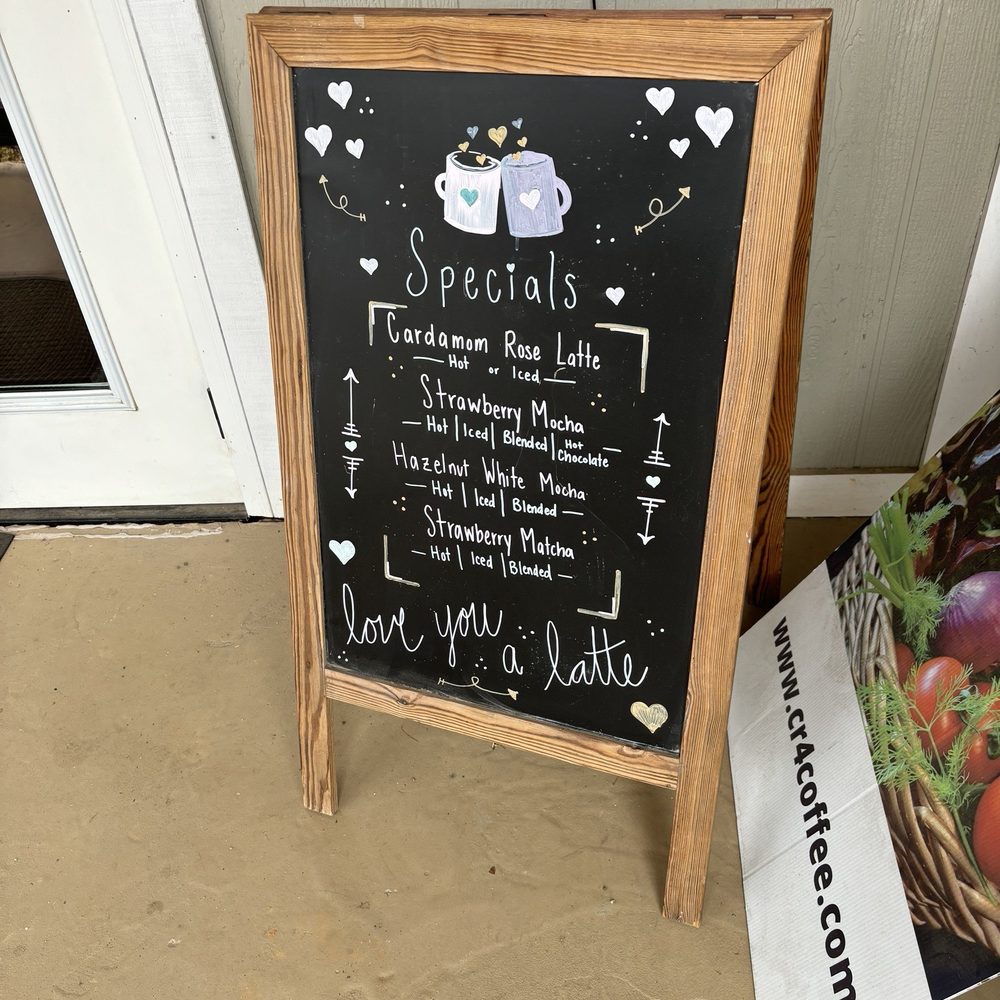 Specials
Cardamom Rose Latte
— Hot or Iced —
Strawberry Mocha
— Hot | Iced | Blended | Hot Chocolate —
Hazelnut White Mocha
— Hot | Iced | Blended —
Strawberry Matcha
— Hot | Iced | Blended —
love you
a latte
www.cr4coffee.com